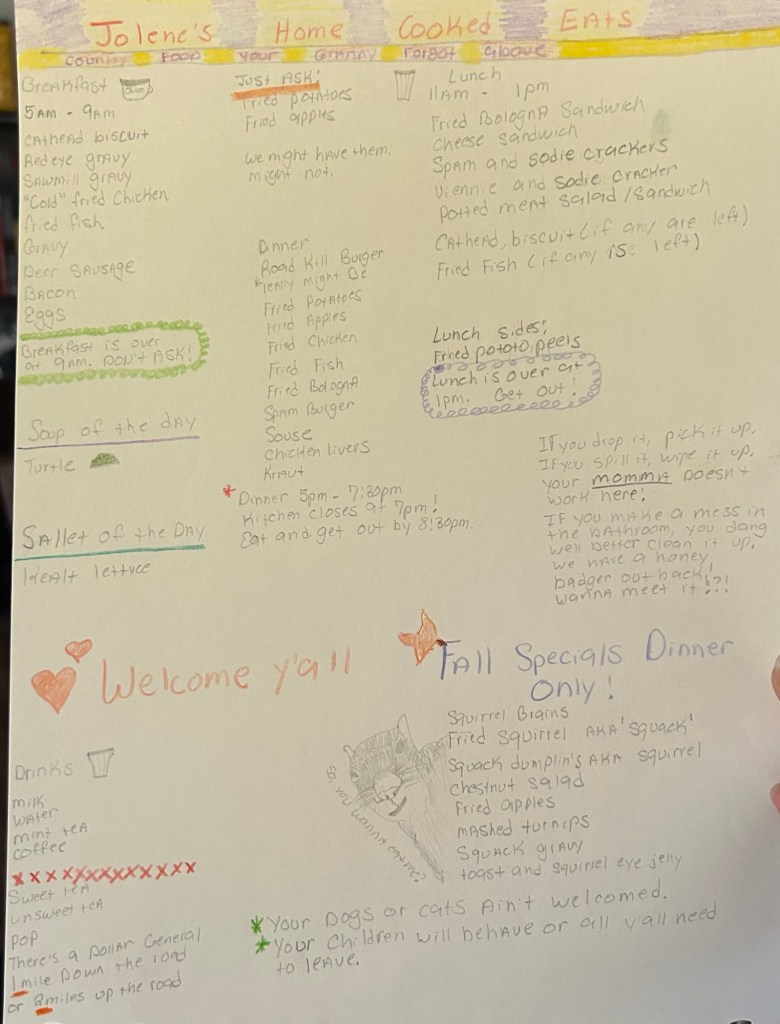 Jolene's Home Cooked Eats
Country Food your Granny Forgot about
Breakfast
5AM - 9AM
Cathead biscuit
Red eye gravy
Sawmill gravy
"Cold" fried chicken
fried fish
Gravy
Deer Sausage
Bacon
Eggs
Breakfast is over
at 9am. Don't ASK!
Soup of the day
Turtle
Sallet of the Day
Kealt lettuce
Just Ask!
Fried potatoes
Fried apples
We might have them,
might not.
Dinner
Road Kill Burger
*really might be
Fried Potatoes
Fried Apples
Fried Chicken
Fried Fish
Fried Bologna
Spam Burger
Souse
Chicken livers
Kraut
* Dinner 5pm - 7:30pm
Kitchen closes at 7pm!
Eat and get out by 8:30pm.
Lunch
11am - 1pm
Fried Bologna Sandwich
Cheese sandwich
Spam and sodie crackers
Viennie and sodie cracker
Potted meat salad/sandwich
Cathead, biscuit (if any are left)
Fried Fish (if any is left)
Lunch sides:
Fried pototo peels
Lunch is over at
1pm. Get out!
If you drop it, pick it up.
If you spill it, wipe it up.
your momma doesn't
work here!
If you make a mess in
the bathroom, you dang
well better clean it up.
We have a honey
badger out back!
wanna meet it!?!
Welcome y'all
Fall Specials Dinner
Only!
Squirrel Brains
Fried squirrel AKA 'squack'
Squack dumplin's AKA squirrel
Chestnut salad
Fried apples
Mashed turnips
Squack gravy
toast and squirrel eye jelly
So, you wanna eat me?
Drinks
milk
water
mint tea
coffee
x x x x x x x x x x x x x
Sweet tea
unsweet tea
pop
There's a Dollar General
1 mile Down the road
or 2 miles up the road
* Your Dogs or cats Ain't welcomed.
* Your children will behave or all y'all need
to leave.